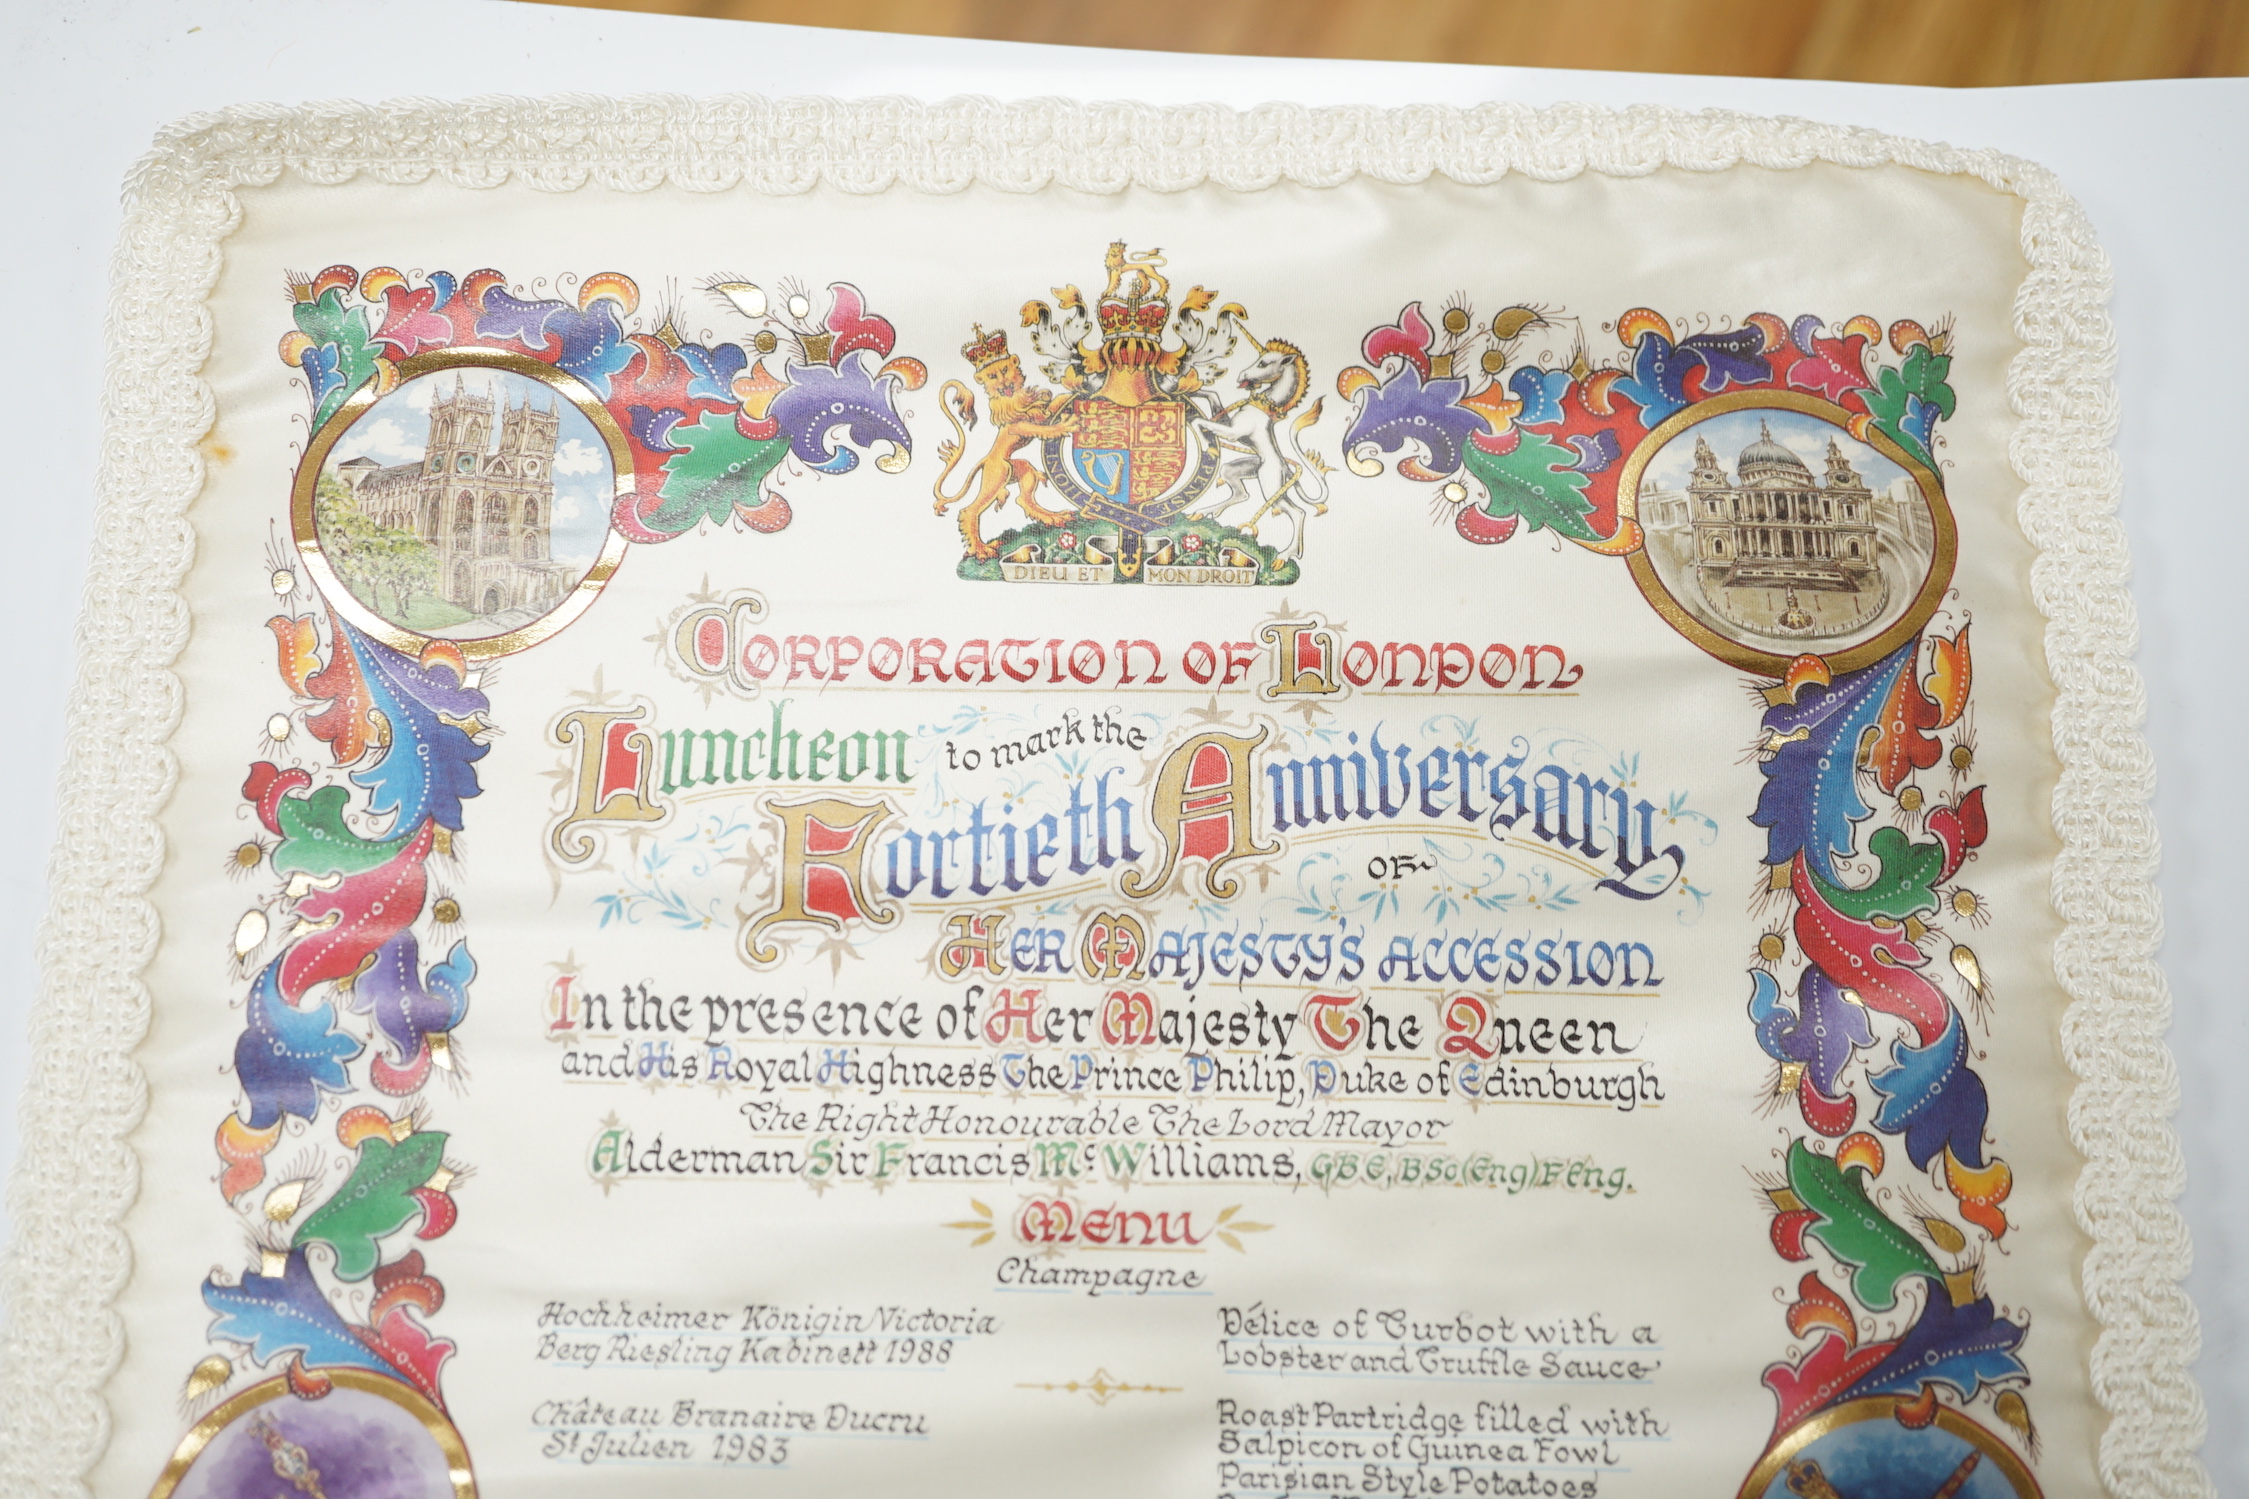 HONI
PENSE
DIEU ET MON DROIT
Corporation of London
Luncheon to mark the
Fortieth Anniversary
of
Her Majesty's Accession
In the presence of Her Majesty The Queen
and His Royal Highness The Prince Philip, Duke of Edinburgh
The Right Honourable The Lord Mayor
Alderman Sir Francis Mc Williams, GBE, BSc(Eng)FEng.
Menu
Champagne
Hochheimer Königin Victoria
Berg Riesling Kabinett 1988
Délice of Turbot with a
Lobster and Truffle Sauce
Château Branaire Ducru
St Julien 1983
Roast Partridge filled with
Salpicon of Guinea Fowl
Parisian Style Potatoes